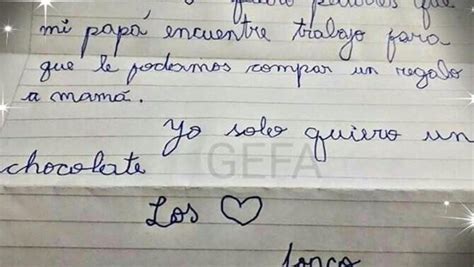 que
mi papá encuentre trabajo para
que le podamos compar un regalo
a mamá.
Yo solo quiero un
chocolate
GEFA
Los ♡